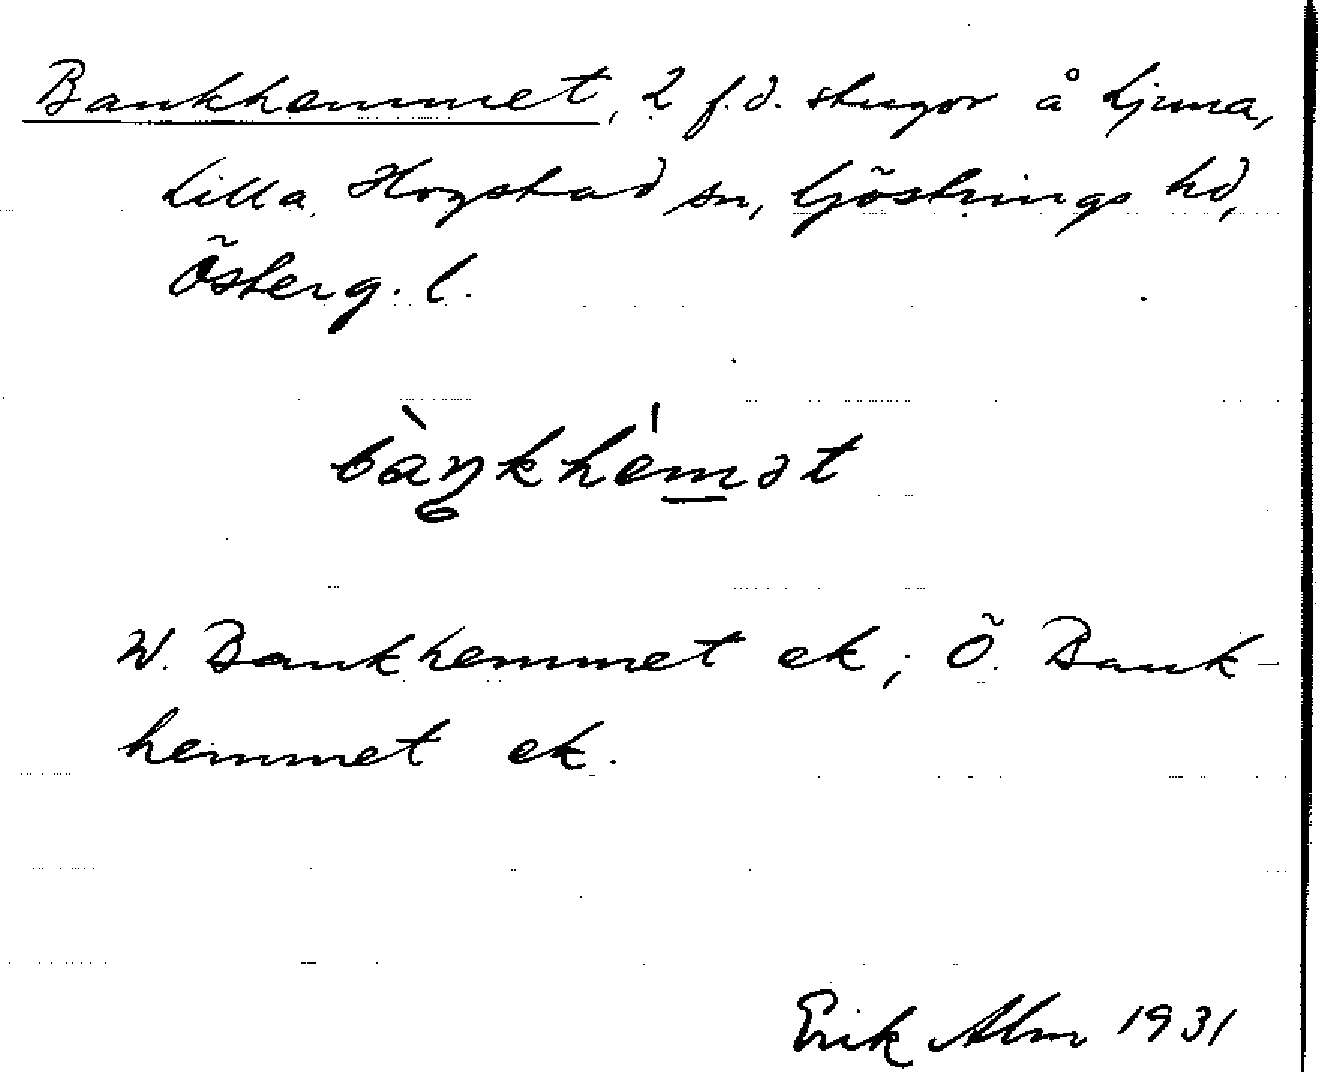 Bankhemmet, 2 f.d. stugor å Ljuna,
Lilla Hogstad sn, Göstrings hd,
Österg. l.
bàŋkhémət
W. Bankhemmet ek; Ö. Bank-
hemmet ek.
Erik Alm 1931